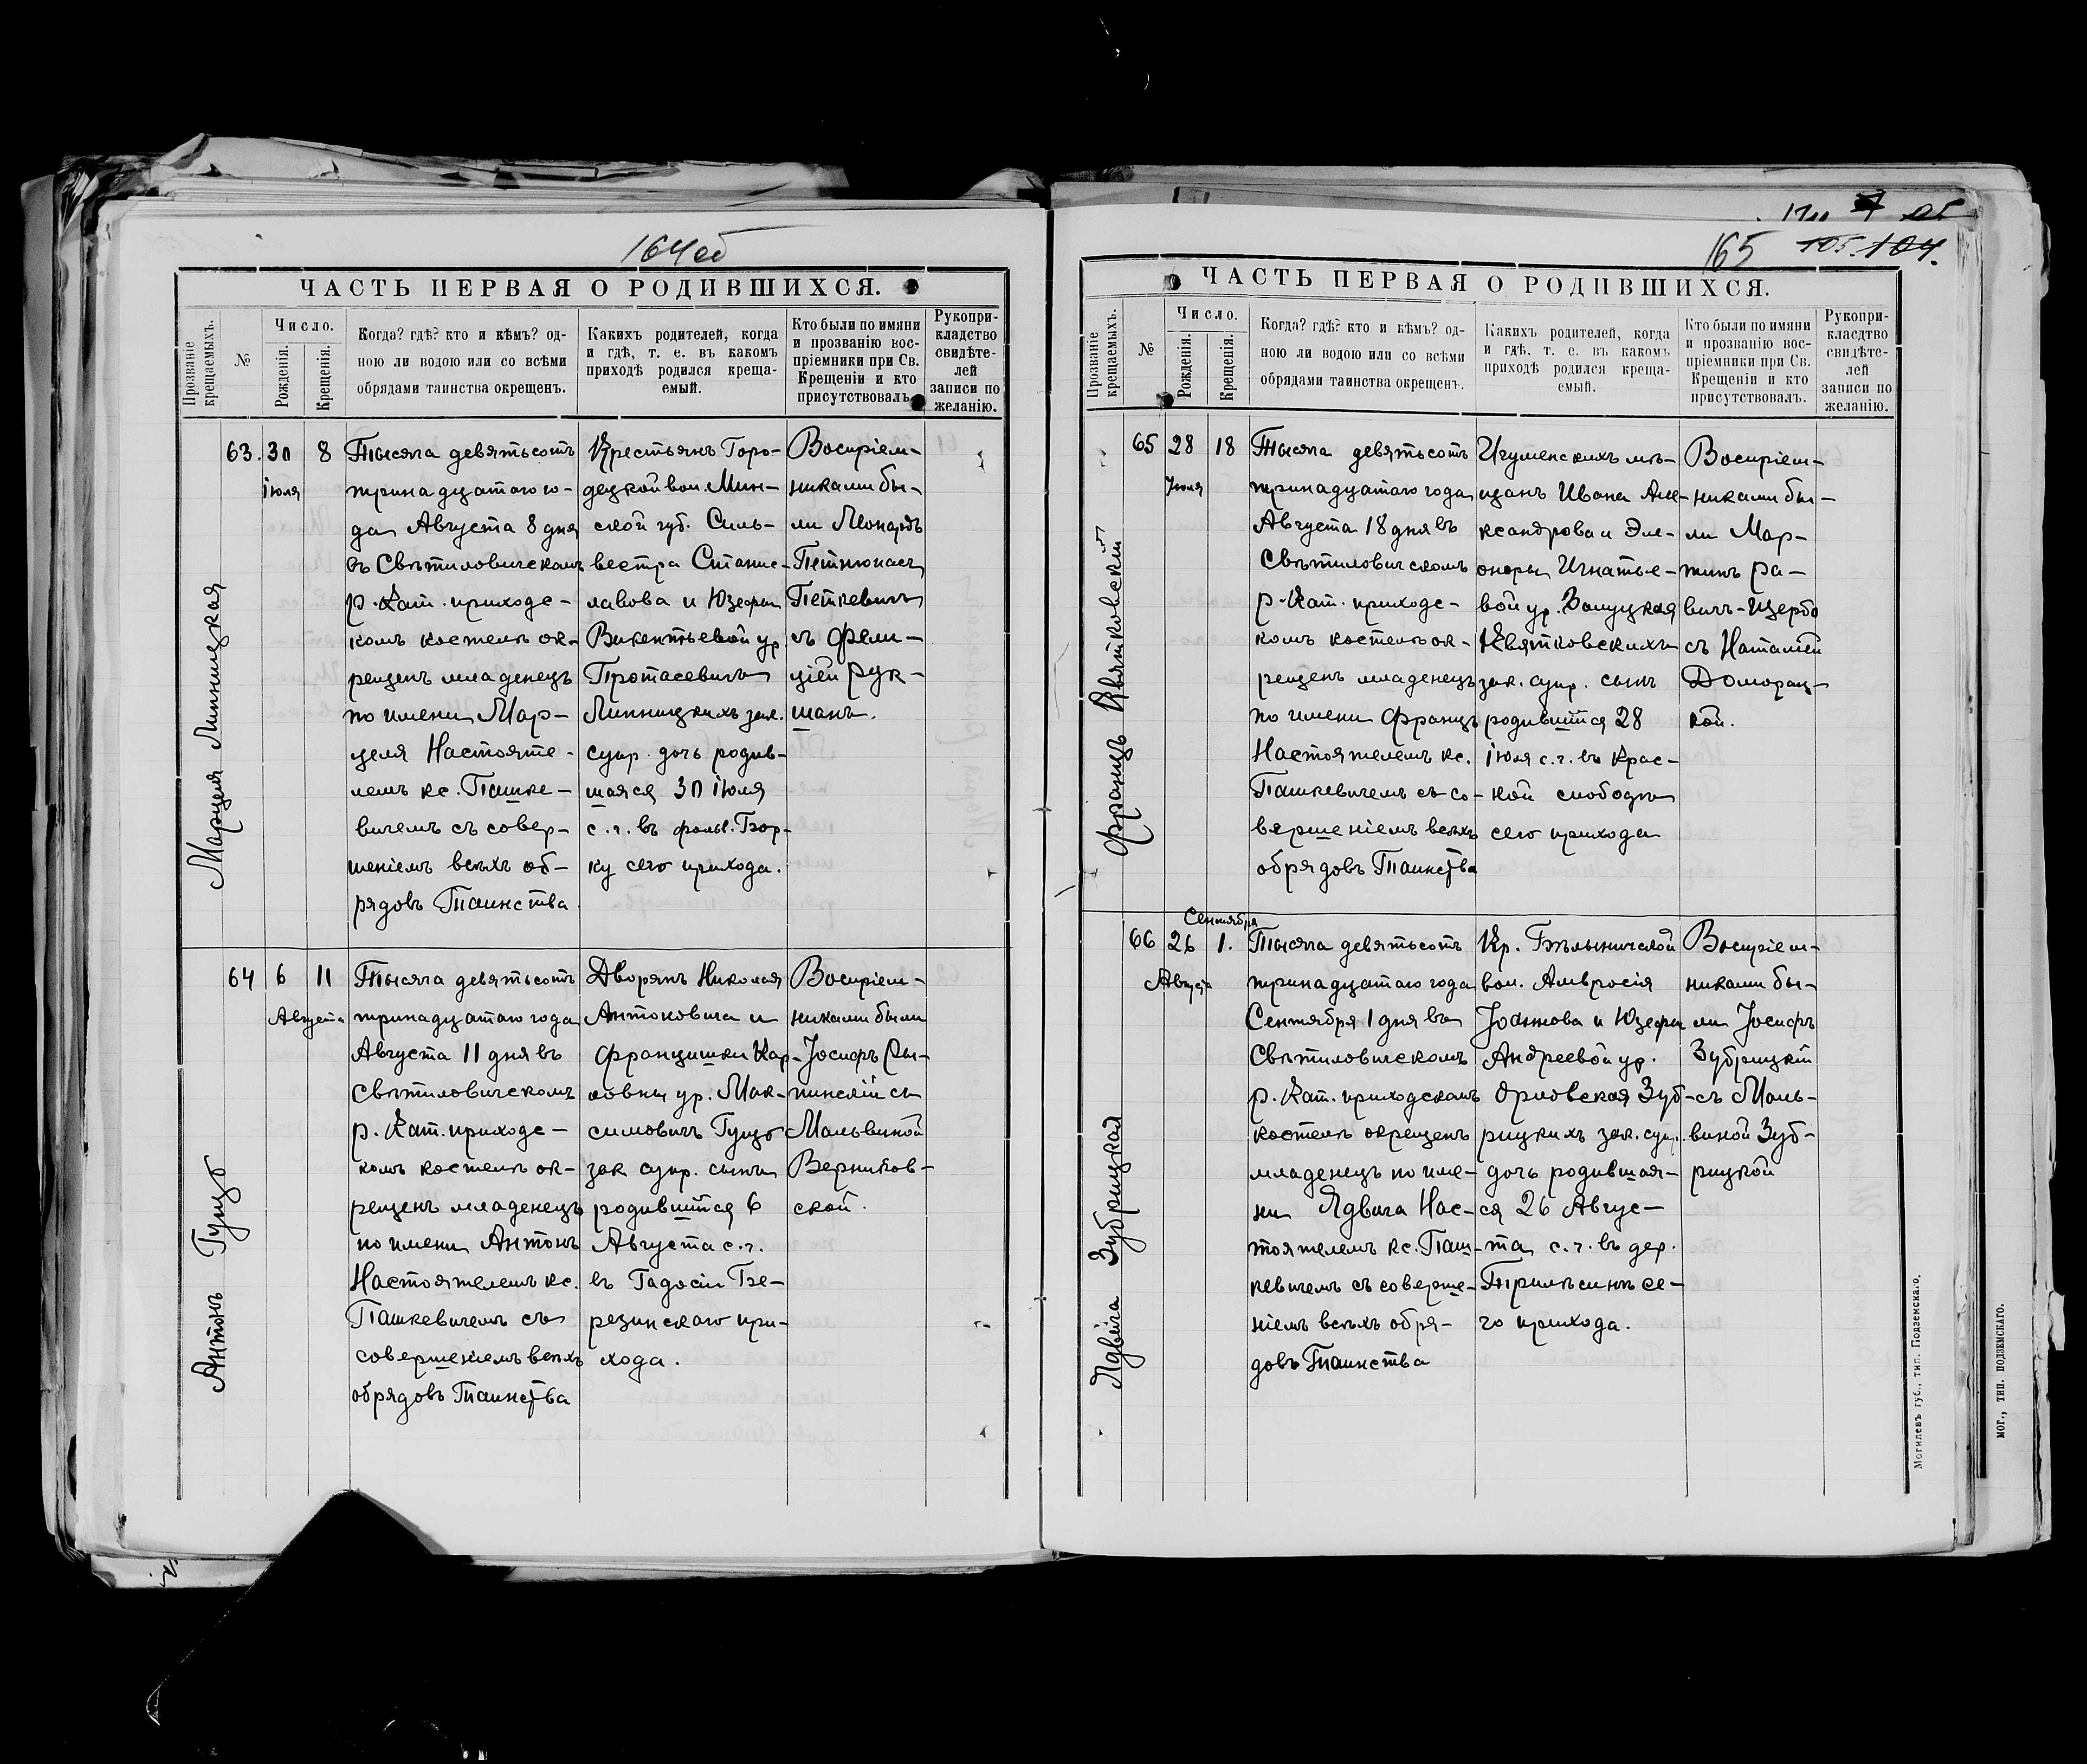 164об
ЧАСТЬ ПЕРВАЯ О РОДИВШИХСЯ.
Прозваніе крещаемыхъ.
№
Число.
Рожденія.
Крещенія.
Когда? гдѣ? кто и кѣмъ? од-
ною ли водою или со всѣми
обрядами таинства окрещенъ.
Какихъ родителей, когда
и гдѣ, т. е. въ какомъ
приходѣ родился креща-
емый.
Кто были по имяни
и прозванію вос-
пріемники при Св.
Крещеніи и кто
присутствовалъ.
Рукопри-
кладство
свидѣте-
лей
записи по
желанію.
Марцеля Липницкая
63.
30
іюля
8
Тысяча девятьсотъ
тринадцатаго го-
да Августа 8 дня
въ Свѣтиловичскомъ
р. Кат. приходс-
комъ костелѣ ок-
рещенъ младенецъ
по имени Мар-
целя Настояте-
лемъ кс. Пашке-
вичемъ съ совер-
шеніемъ всѣхъ об-
рядовъ Таинства
Крестьянъ Горо-
децкой вол. Мин-
ской губ. Силь-
вестра Станис-
лавова и Юзефы
Викентьевой ур
Протасевичъ
Липницкихъ зак.
супр. дочь родив-
шаяся 30 іюля
с. г. въ фольв. Бор-
ку сего прихода.
Воспріем-
никами бы-
ли Леонардъ
Петкевичъ
съ Фели-
ціей Рук-
шанъ.
Антонъ Гуцъ
64
6
Августа
11
Тысяча девятьсотъ
тринадцатаго года
Августа 11 дня въ
Свѣтиловичскомъ
р. Кат. приходс-
комъ костелѣ ок-
рещенъ младенецъ
по имени Антонъ
Настоятелемъ кс.
Пашкевичемъ съ
совершеніемъ всѣхъ
обрядовъ Таинства
Дворянъ Николая
Антоновича и
Францишки Кар-
ловны ур. Мак-
симовичъ Гуцъ
зак супр. сынъ
родившійся 6
Августа с. г.
въ Гадосіи Бе-
резинскаго при-
хода.
Воспріем-
никами были
Іосифъ Ры-
пинскій съ
Мальвиной
Верников-
ской.
165 105. 104.
ЧАСТЬ ПЕРВАЯ О РОДИВШИХСЯ.
Прозваніе крещаемыхъ.
№
Число.
Рожденія.
Крещенія.
Когда? гдѣ? кто и кѣмъ? од-
ною ли водою или со всѣми
обрядами таинства окрещенъ.
Какихъ родителей, когда
и гдѣ, т. е. въ какомъ
приходѣ родился креща-
емый.
Кто были по имяни
и прозванію вос-
пріемники при Св.
Крещеніи и кто
присутствовалъ.
Рукопри-
кладство
свидѣте-
лей
записи по
желанію.
Францъ Квятковскій
65
28
Іюля
18
Тысяча девятьсотъ
тринадцатаго года
Августа 18 дня въ
Свѣтиловичскомъ
р. Кат. приходс-
комъ костелѣ ок-
рещенъ младенецъ
по имени Францъ
Настоятелемъ кс.
Пашкевичемъ съ со-
вершеніемъ всѣхъ
обрядовъ Таинства
Игуменскихъ мѣ-
щанъ Ивана Але-
ксандрова и Эле-
оноры Игнатье-
вой ур. Залуцкая
Квятковскихъ
зак. супр. сынъ
родившійся 28
іюля с. г. въ Крас-
ной слободѣ
сего прихода
Воспріем-
никами бы-
ли Мар-
тинъ Ра-
вичъ-Щербо
съ Наталіей
Доморац-
кой.
Ядвига Зубрицкая
66
26
Августа
Сентября
1.
Тысяча девятьсотъ
тринадцатаго года
Сентября 1 дня въ
Свѣтиловичскомъ
р. Кат. приходскомъ
костелѣ окрещенъ
младенецъ по име-
ни Ядвига Нас-
тоятелемъ кс. Паш-
кевичемъ съ соверше-
ніемъ всѣхъ обря-
довъ Таинства
Кр. Бѣлыничской
вол. Амвросія
и Юзефы
Андреевой ур.
Орловская Зуб-
рицкихъ зак. супр.
дочь родившая-
ся 26 Авгус-
та с. г. въ дер.
се-
го прихода.
Воспріем-
никами бы-
ли Іосифъ
Зубрицкій
съ Маль-
виной Зуб-
рицкой
Могилевъ губ., тип. Подземскаго.
МОГ., ТИП. ПОДЗЕМСКАГО.